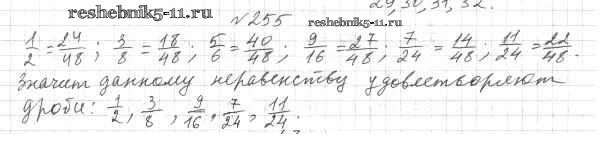 29, 30, 31, 32.
reshebnik5-11.ru №255 reshebnik5-11.ru
1/2 = 24/48; 3/8 = 18/48; 5/6 = 40/48; 9/16 = 27/48; 7/24 = 14/48; 11/24 = 22/48.
Значит данному неравенству удовлетворяют
дроби: 1/2, 3/8, 9/16, 7/24, 11/24.